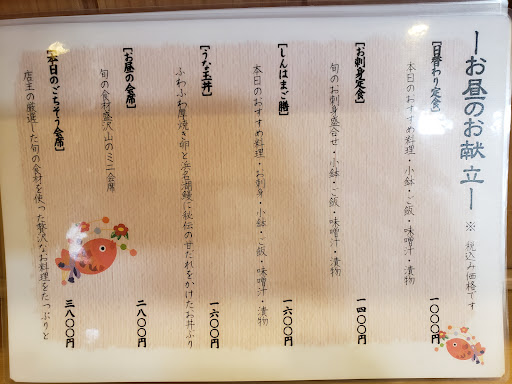 ―お昼のお献立― ※ 税込み価格です
【日替わり定食】
本日のおすすめ料理・小鉢・ご飯・味噌汁・漬物
一〇〇〇円
【お刺身定食】
旬のお刺身盛合せ・小鉢・ご飯・味噌汁・漬物
一四〇〇円
【しんはまご膳】
本日のおすすめ料理・お刺身・小鉢・ご飯・味噌汁・漬物
一六〇〇円
【うな玉丼】
ふわふわ厚焼き卵と浜名湖鰻に秘伝の甘だれをかけたお丼ぶり
一六〇〇円
【お昼の会席】
旬の食材盛沢山のミニ会席
二八〇〇円
【本日のごちそう会席】
店主の厳選した旬の食材を使った贅沢なお料理をたっぷりと
三八〇〇円